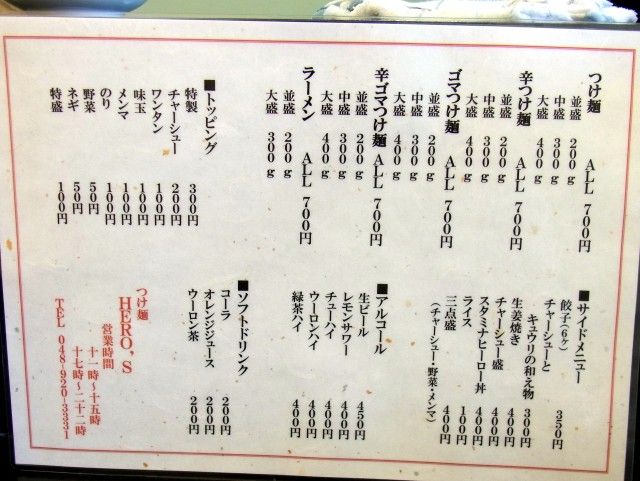 つけ麺 ALL 700円
並盛 200g
中盛 300g
大盛 400g
辛つけ麺 ALL 700円
並盛 200g
中盛 300g
大盛 400g
ゴマつけ麺 ALL 700円
並盛 200g
中盛 300g
大盛 400g
辛ゴマつけ麺 ALL 700円
並盛 200g
中盛 300g
大盛 400g
ラーメン ALL 700円
並盛 200g
大盛 300g
■トッピング
特製 300円
チャーシュー 200円
ワンタン 100円
味玉 100円
メンマ 100円
のり 100円
野菜 50円
ネギ 50円
特盛 100円
■サイドメニュー
餃子(6ヶ) 350円
チャーシューと
キュウリの和え物 300円
生姜焼き 400円
チャーシュー盛 400円
スタミナヒーロー丼 400円
ライス 100円
三点盛 400円
(チャーシュー・野菜・メンマ)
■アルコール
生ビール 450円
レモンサワー 400円
チューハイ 400円
ウーロンハイ 400円
緑茶ハイ 400円
■ソフトドリンク
コーラ 200円
オレンジジュース 200円
ウーロン茶 200円
つけ麺
HERO,S
営業時間
十一時~十五時
十七時~二十二時
TEL 048-920-3331